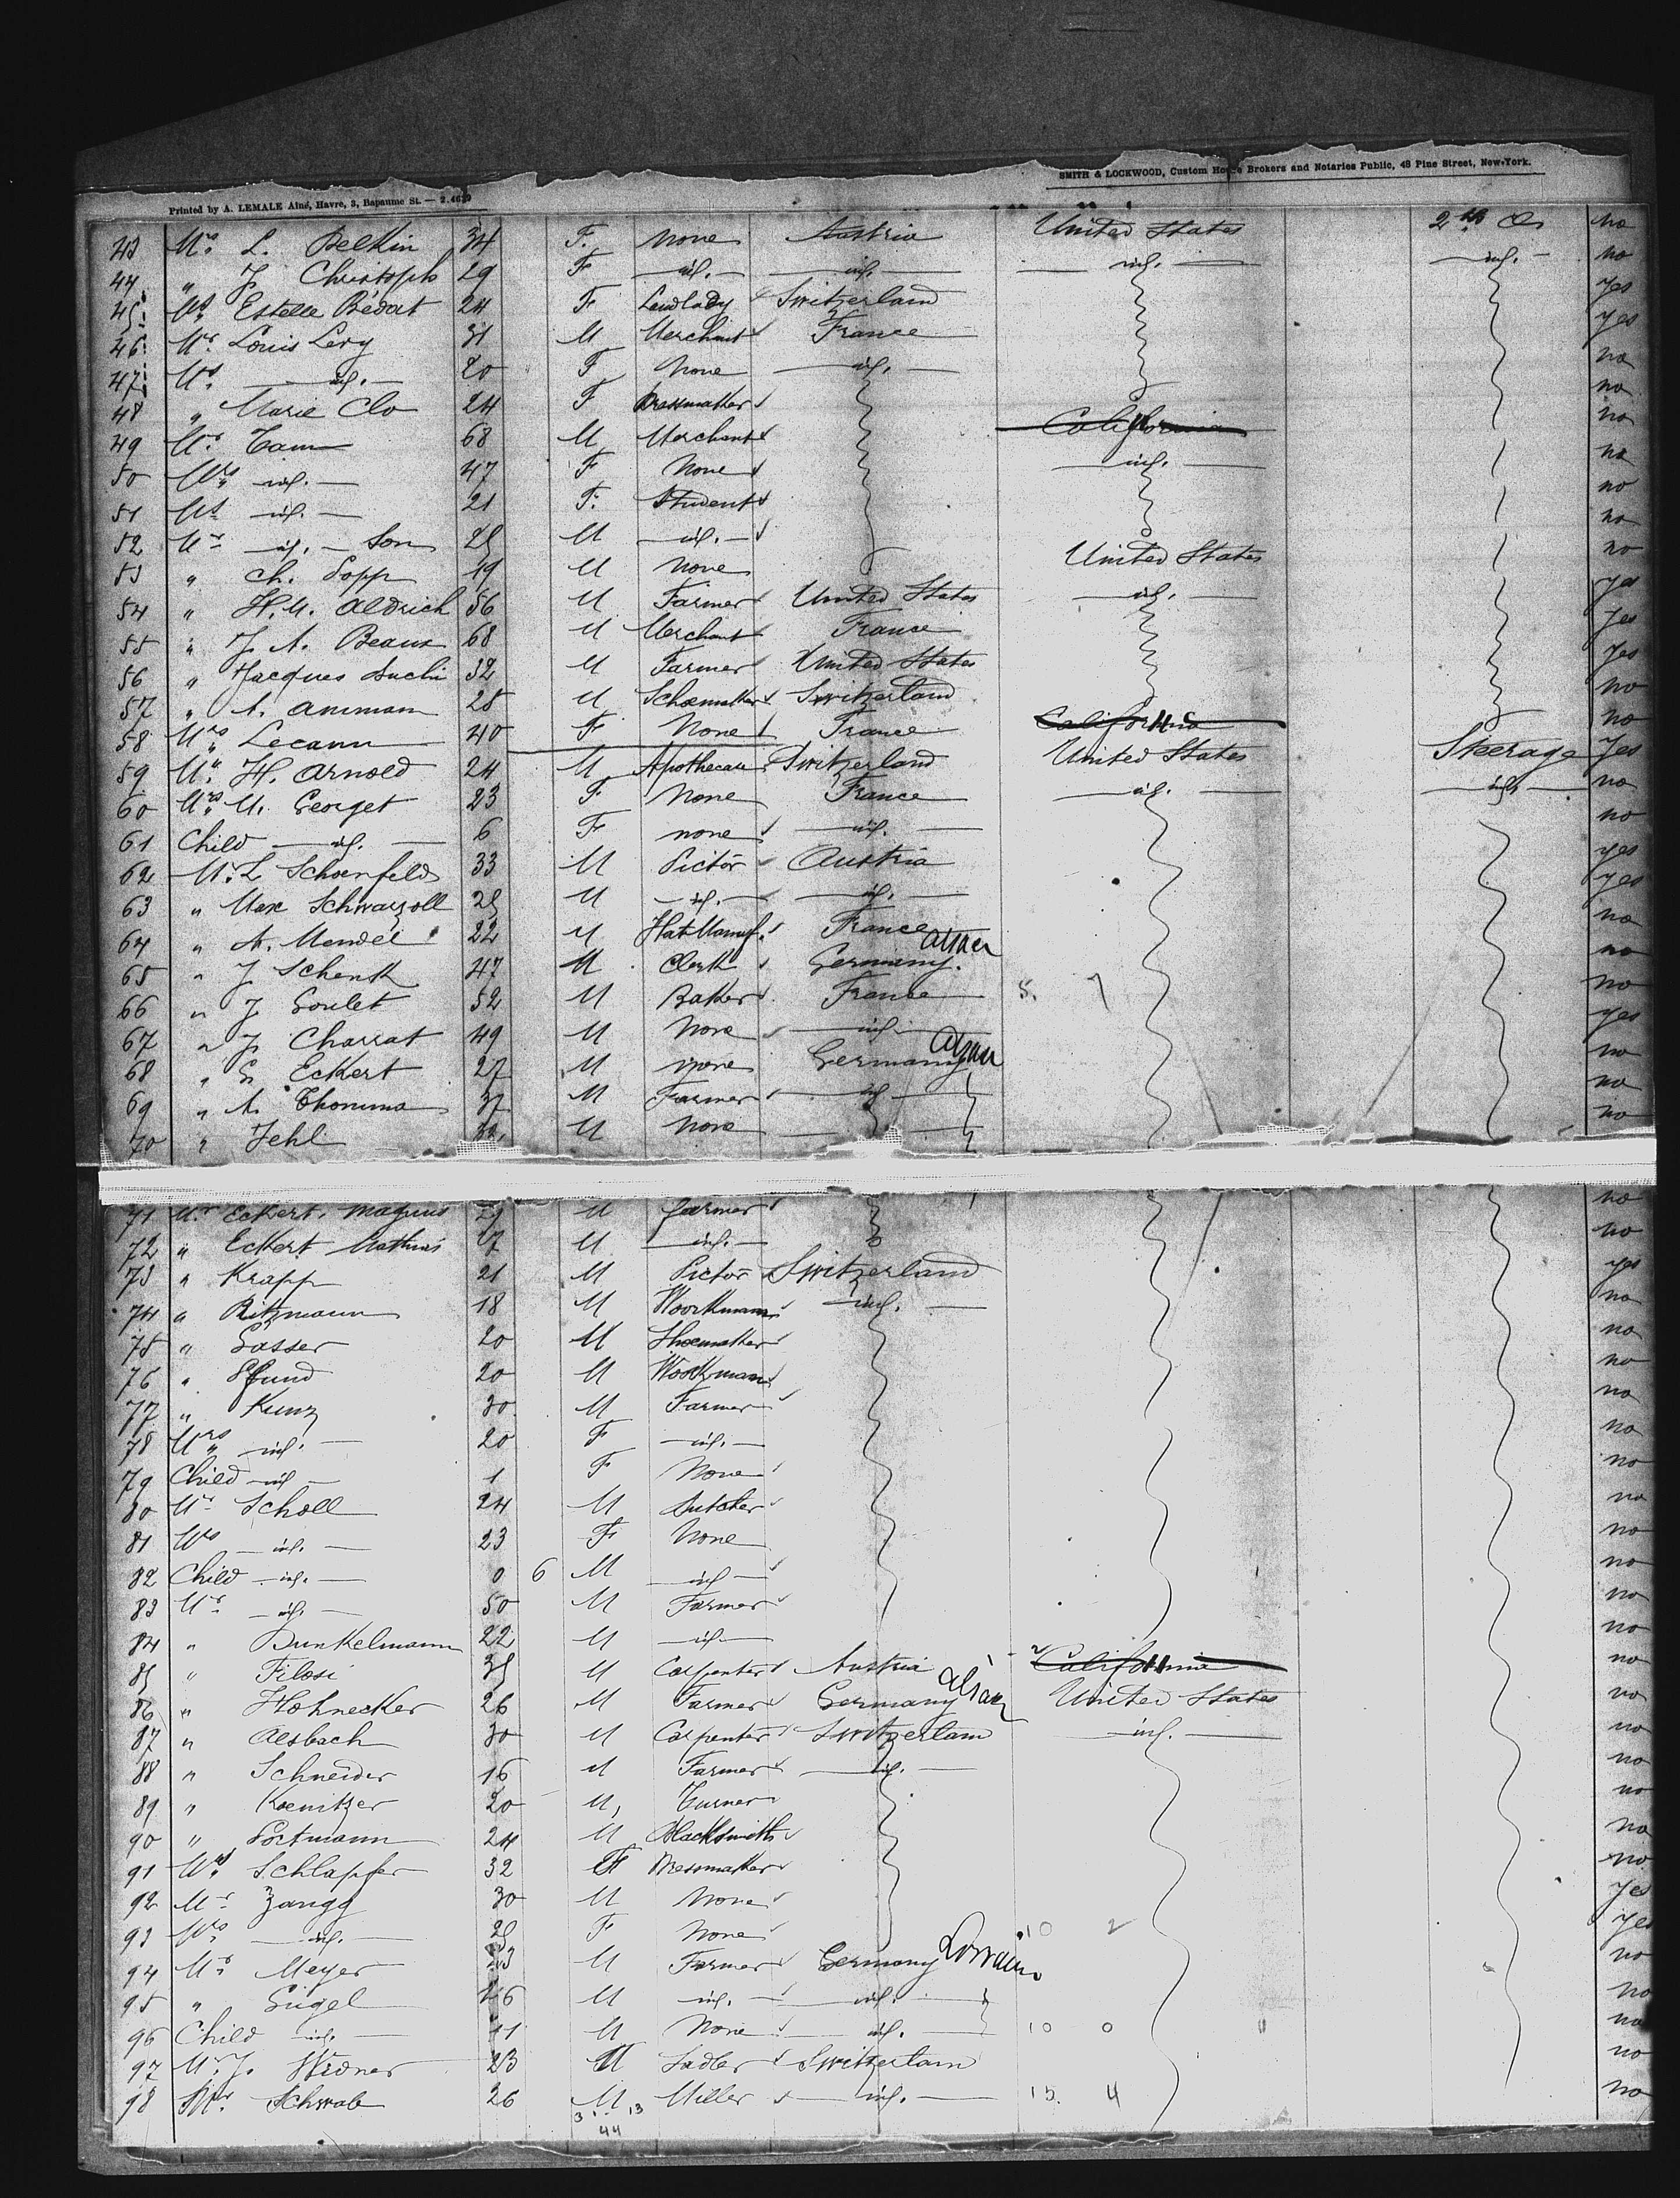 SMITH & LOCKWOOD, Custom House Brokers and Notaries Public, 48 Pine Street, New-York.
Printed by A. LEMALE Aîné, Havre, 3, Bapaume St. — 2.4639
43 Mrs L. Belkin 34 F. None Austria United States 2th Cl no
44 " J. Christoph 29 F id. id. id. id. no
45 Ms Estelle Bédat 24 F Landlady Switzerland yes
46 Mr Louis Levy 31 M Merchant France yes
47 Ms id. 20 F None id. no
48 " Marie Clo 24 F Dressmaker no
49 Mr Cam 68 M Merchant California no
50 Mrs id. 47 F None id. no
51 Ms id. 21 F. Student no
52 Mr id. Son 25 M id. no
53 " Ch. Sopp 19 M None United States no
54 " H. M. Aldrich 56 M Farmer United States id. yes
55 " J. A. Beaux 68 M Merchant France yes
56 " Jacques Suchi 32 M Farmer United States yes
57 " A. Ammam 25 M Schoemaker Switzerland no
58 Mrs Lecann 40 F None France California no
59 Mr H. Arnold 24 M Apothecar Switzerland United States Steerage Yes
60 Mrs M. Georget 23 F None France id. id. no
61 Child id. 6 F none id. no
62 Mr L Schoenfeld 33 M Pictor Austria yes
63 " Max Schwarzoll 25 M id. id. yes
64 " A. Mendel 22 M Hat Manuf. France no
65 " J Schenk 47 M Clerk Germany. no
66 " J Goulet 52 M Baker France 5. 7 no
67 " J. Charrat 49 M None id. yes
68 " G. Eckert 27 M none Germany no
69 " A. Thomma 37 M Farmer id no
70 " Jehl M None no
71 Mr Eckert. Magnus 29 M farmer no
72 " Eckert Mathias 17 M id. no
73 " Krapp 21 M Pictor Switzerland yes
74 " Ritzmann 18 M Woorkmann id. no
75 " Gasser 20 M Shoemaker no
76 " Pfund 20 M Woorkman no
77 " Kunz 30 M Farmer no
78 Mrs " id. 20 F id. no
79 Child id 1 F None no
80 Mr Scholl 24 M Butcher no
81 Mrs id. 23 F None no
82 Child id. 0 6 M id no
83 Mr id. 50 M Farmer no
84 " Dunkelmann 22 M id no
85 " Filosi 35 M Carpenter Austria California no
86 " Hohnecker 26 M Farmer Germany Alsace United States no
87 " Aesbach 30 M Carpenter Switzerlam id. no
88 " Schneider 16 M Farmer id. no
89 " Koenitzer 20 M, Turner no
90 " Portmann 24 M Blacksmith no
91 Ms Schlapfer 32 F Dressmaker no
92 Mr Zangg 30 M None yes
93 Mrs id. 29 F None 10 2 yes
94 Mr Meyer 23 M Farmer Germany Lorrain no
95 " Gugel 46 M id. id. no
96 Child id. 11 M None id. 10 0 no
97 Mr J. Widner 23 M Sadler Switzerlam no
98 Mr Schwab 26 M Miller id. 15. 4 no
3 13
44